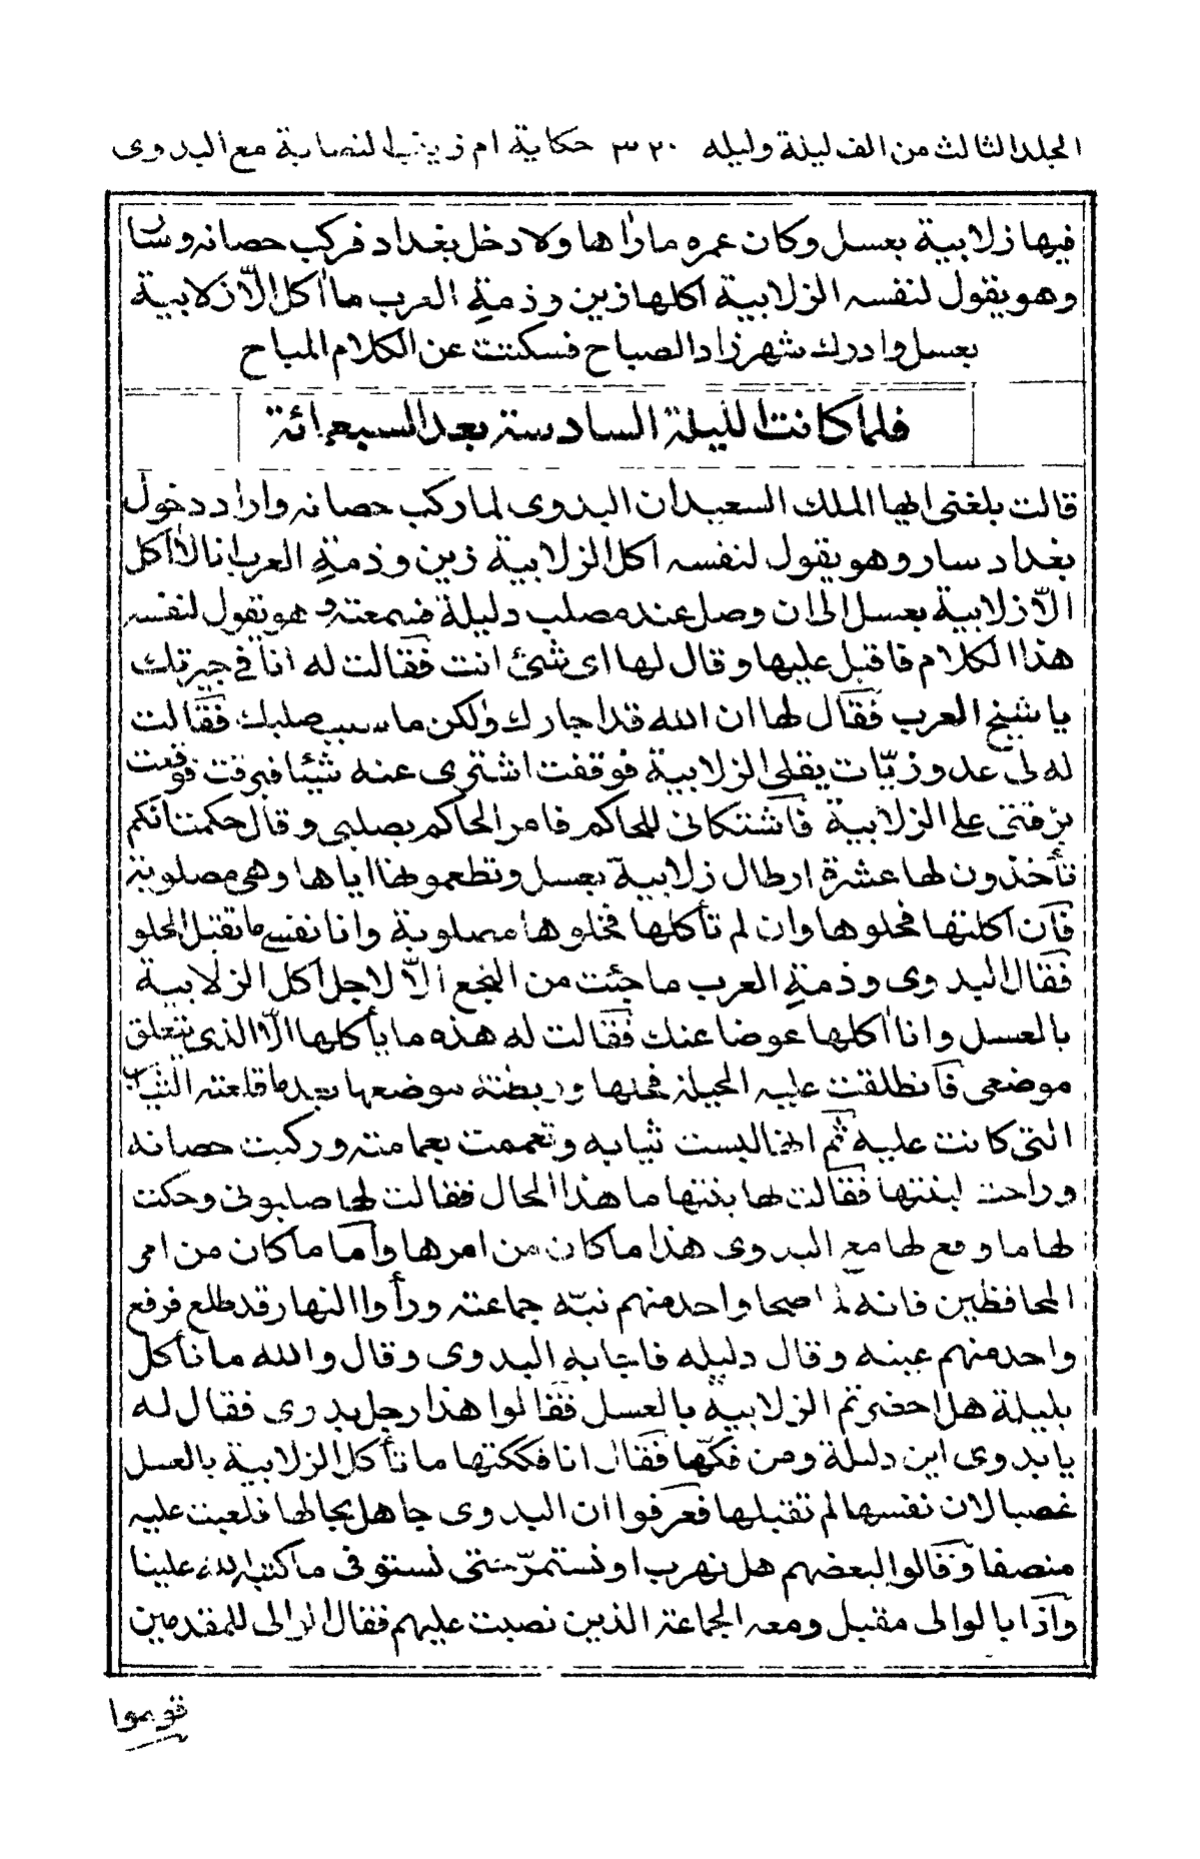 المجلد الثالث من الف ليلة وليله ٣٢٠ حكاية ام زينب النصابة مع البدوى
فيها زلابية بعسل وكان عمره ما رأها ولا دخل بغداد فركب حصانه وسار
وهو يقول لنفسه الزلابية اكلها زين وذمةِ العرب ما اكل الّا زلابية
بعسل وادرك شهرزاد الصباح فسكتت عن الكلام المباح
فلما كانت الليلة السادسة بعد السبعمائة
قالت بلغنى ايها الملك السعيد ان البدوى لما ركب حصانه واراد دخول
بغداد سار وهو يقول لنفسه اكل الزلابية زين وذمةِ العرب انا لا اكل
الّا زلابية بعسل الى ان وصل عند مصلب دليلة فسمعته وهو يقول لنفسه
هذا الكلام فاقبل عليها وقال لها اى شئ انت فقالت له انا فى جيرتك
يا شيخ العرب فقال لها ان الله قد اجارك ولكن ما سبب صلبك فقالت
له لى عدو زيّات يقلى الزلابية فوقفت اشترى عنه شيئا فبزقت فوقعت
بزقتى على الزلابية فاشتكانى للحاكم فامر الحاكم بصلبى وقال حكمت انكم
تأخذون لها عشرة ارطال زلابية بعسل وتطعمونها اياها وهى مصلوبة
فان اكلتها فحلوها وان لم تأكلها فخلوها مصلوبة وانا نفسى ما تقبل الحلو
فقال البدوى وذمةِ العرب ما جئت من النجع الّا لاجل اكل الزلابية
بالعسل وانا اكلها عوضا عنك فقالت له هذه ما يأكلها الّا الذى يتعلق
موضعى فانطلقت عليه الحيلة فحلها وربطته موضعها بعد ما قلعته الثياب
التى كانت عليه ثم انها لبست ثيابه وتعممت بعمامته وركبت حصانه
وراحت لبنتها فقالت لها بنتها ما هذا الحال فقالت لها صلبونى وحكت
لها ما وقع لها مع البدوى هذا ما كان من امرها وأما ما كان من امر
المحافظين فانه لما صحا واحد منهم نبّه جماعته ورأوا النهار قد طلع فرفع
واحد منهم عينه وقال دليله فاجابه البدوى وقال والله ما نأكل
بليلة هل احضرتم الزلابية بالعسل فقالوا هذا رجل بدوى فقال له
يا بدوى اين دليلة ومن فكّها فقال انا فككتها ما تأكل الزلابية بالعسل
غصبا لان نفسها لم تقبلها فعرفوا ان البدوى جاهل بحالها فلعبت عليه
منصفا وقالوا لبعضهم هل نهرب او نستمرّ حتى نستوفى ما كتب الله علينا
واذا بالوالى مقبل ومعه الجماعة الذين نصبت عليهم فقال الوالى للمقدمين
قوموا